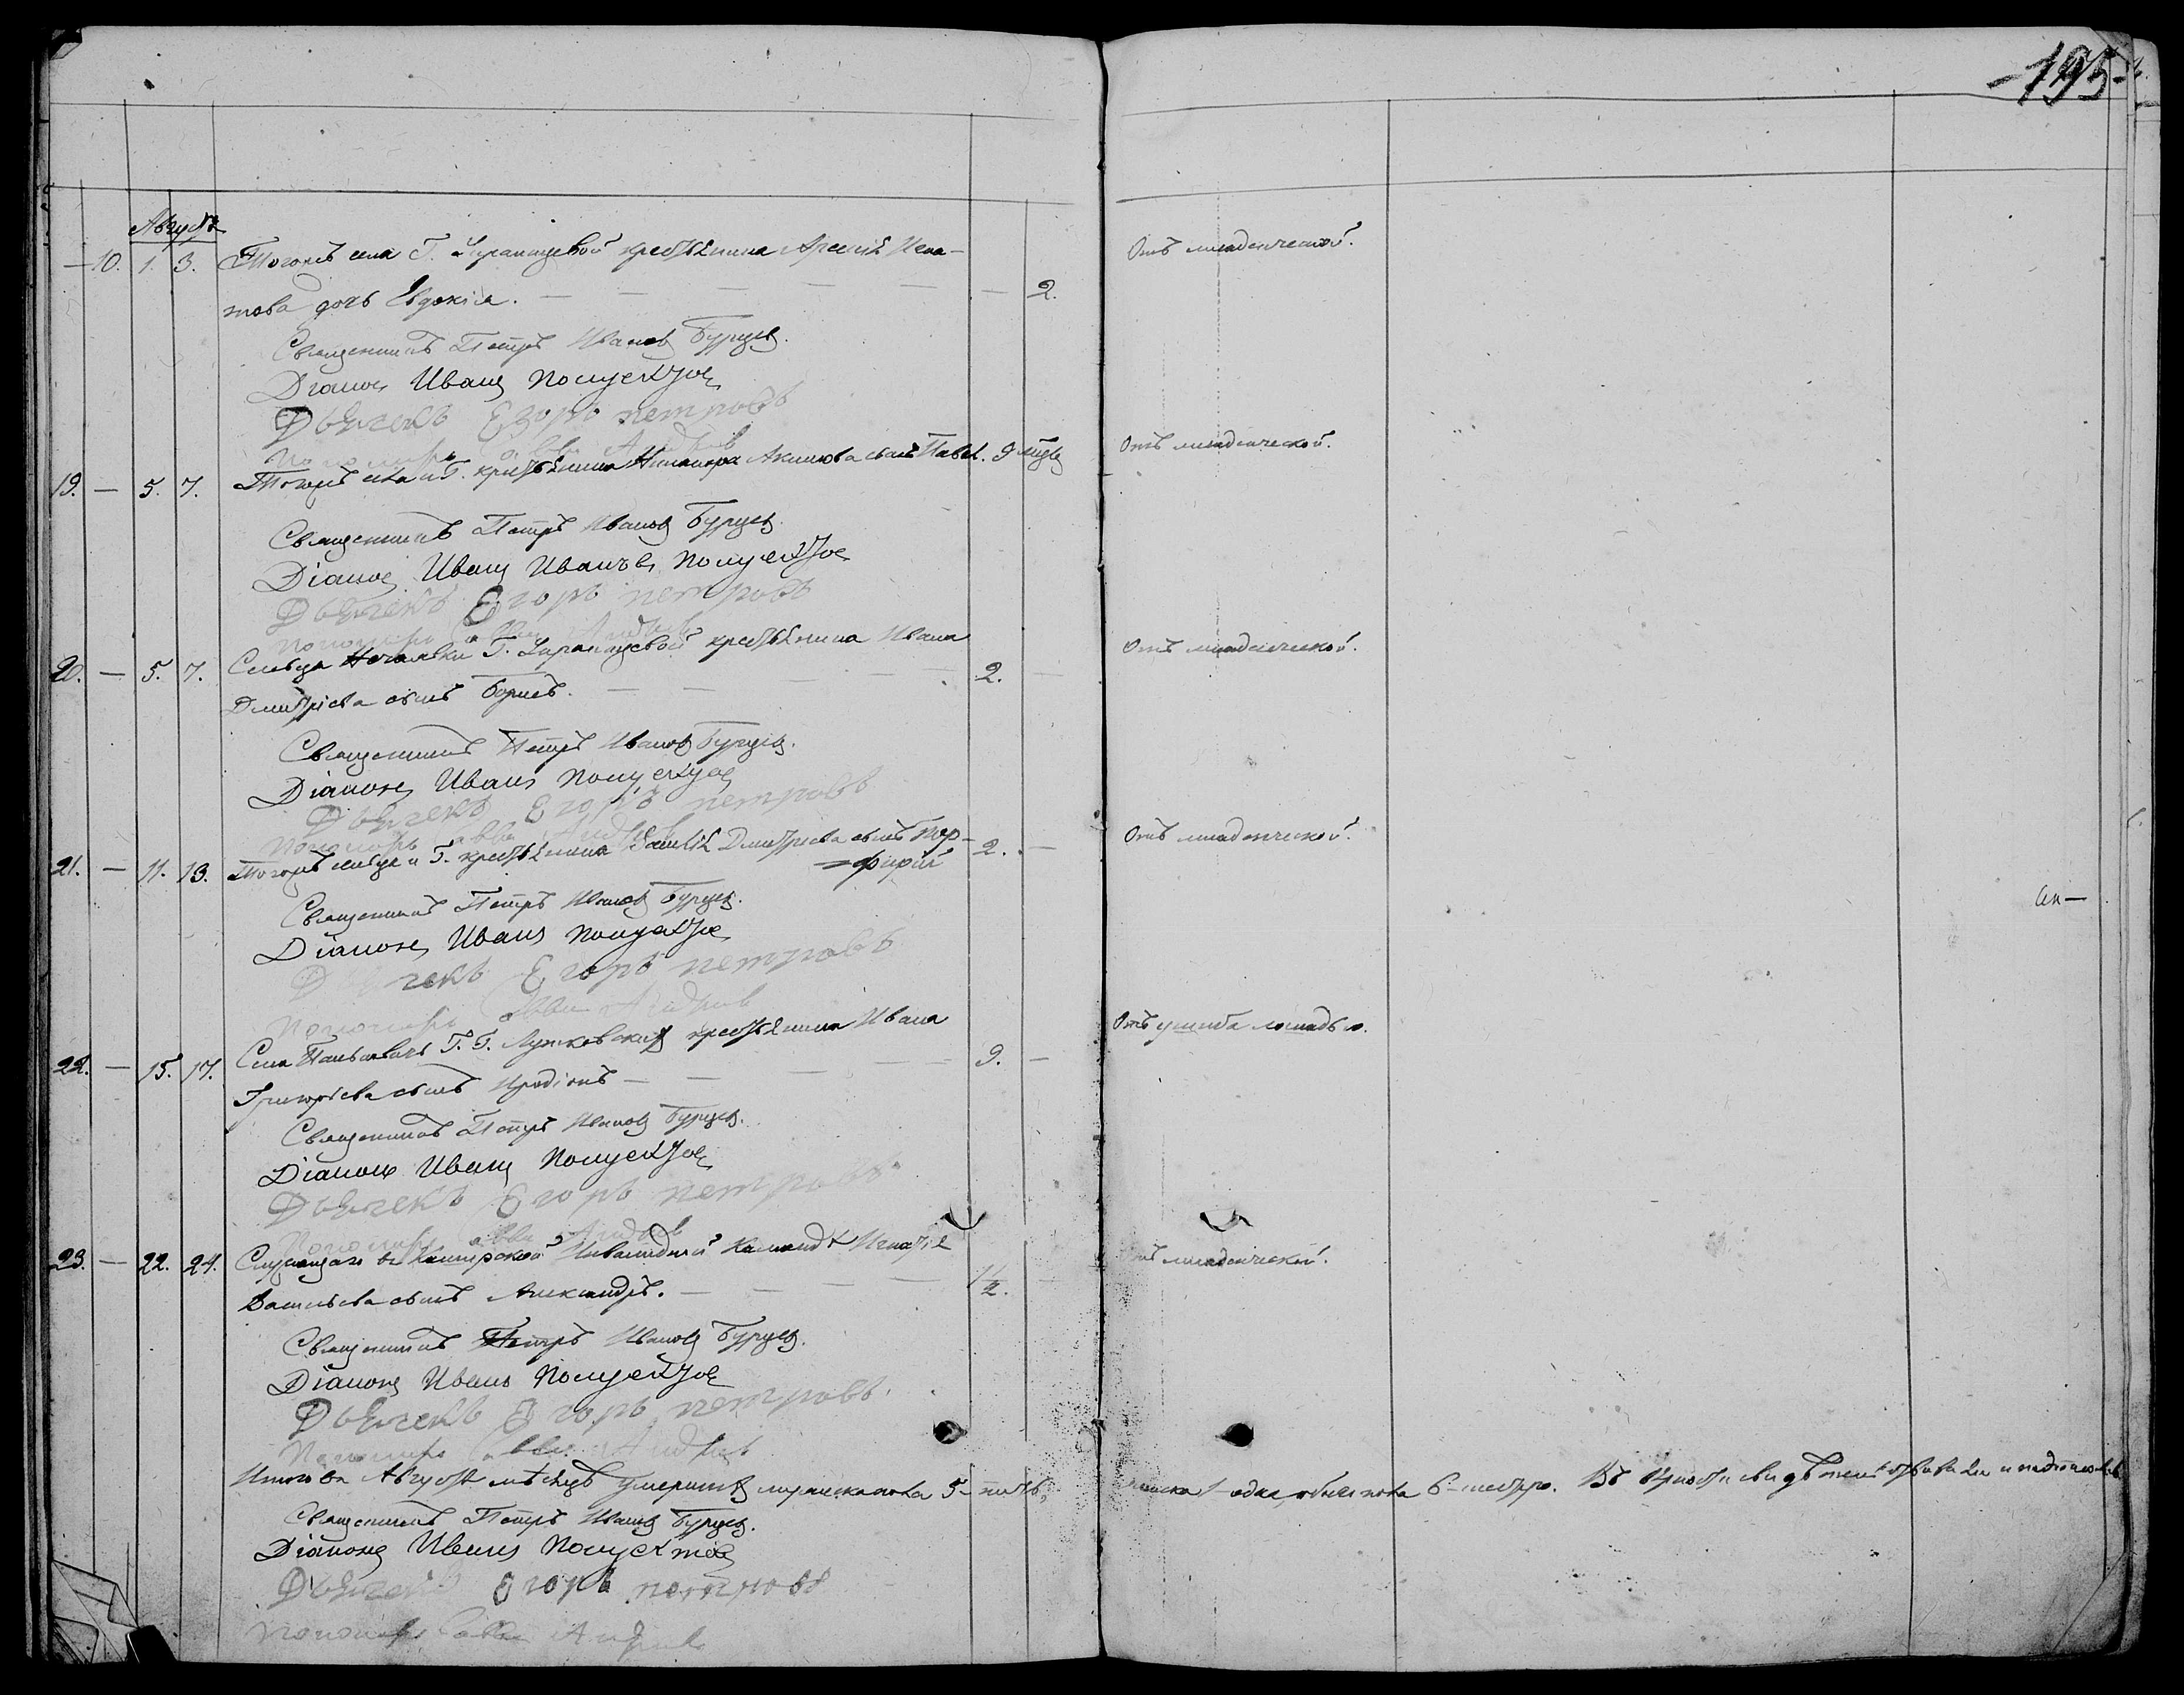 -195-
Августъ
10. 1. 3. Тогожъ села Г. крестьянина Арсенія Игна-
това дочь Евдокія. 2. Отъ младенческой.
Священникъ Петръ Ивановъ Бурцевъ.
Діаконъ Иванъ Полуектовъ
Дьячекъ Егоръ петровъ
Пономарь Савва Андреевъ
19. — 5. 7. Тогожъ села и Г. крестьянина Акимова сынъ Павелъ. 9 Отъ младенческой.
Священникъ Петръ Ивановъ Бурцевъ
Діаконъ Иванъ Ивановъ Полуектовъ
Дьячекъ Егоръ петровъ
пономарь Савва Андреевъ
20. — 5. 7. Сельца Г. крестьянина Ивана
Дмитріева сынъ Борисъ. 2. — Отъ младенческой.
Священникъ Петръ Ивановъ Бурцевъ.
Діаконъ Иванъ Полуектовъ
Дьячекъ Егоръ петровъ
Пономарь Савва Андреевъ
21. — 11. 13. Тогожъ сельца и Г. крестьянина Дмитріева сынъ Пор- 2. — Отъ младенческой.
=фирій
Священникъ Петръ Ивановъ Бурцевъ.
Діаконъ Иванъ Полуектовъ
Дьячекъ Егоръ петровъ
Пономарь Савва Андреевъ
22. — 15. 17. Села Г. Г. крестьянина Ивана
Григорьева сынъ Иродіонъ — 9. — Отъ ушиба лошадью.
Священникъ Петръ Ивановъ Бурцевъ.
Діаконъ Иванъ Полуектовъ
Дьячекъ Егоръ петровъ
Пономарь Савва Андреевъ
23. — 22. 24. Служащаго въ Каширской Инвалидной командѣ Игнатія
Васильева сынъ Александръ. 1½. — Отъ младенческой.
Священникъ Петръ Ивановъ Бурцевъ.
Діаконъ Иванъ Полуектовъ
Дьячекъ Егоръ петровъ.
Пономарь Савва Андреевъ
Итого въ Августѣ мѣсяцѣ умершихъ мужеска пола 5 – пять, женска 1 – одна, обоего пола 6 – шестеро. Въ вѣрности свидѣтельствовали и подписались
Священникъ Петръ Ивановъ Бурцевъ.
Діаконъ Иванъ Полуектовъ
Дьячекъ Егоръ петровъ
пономарь Савва Андреевъ